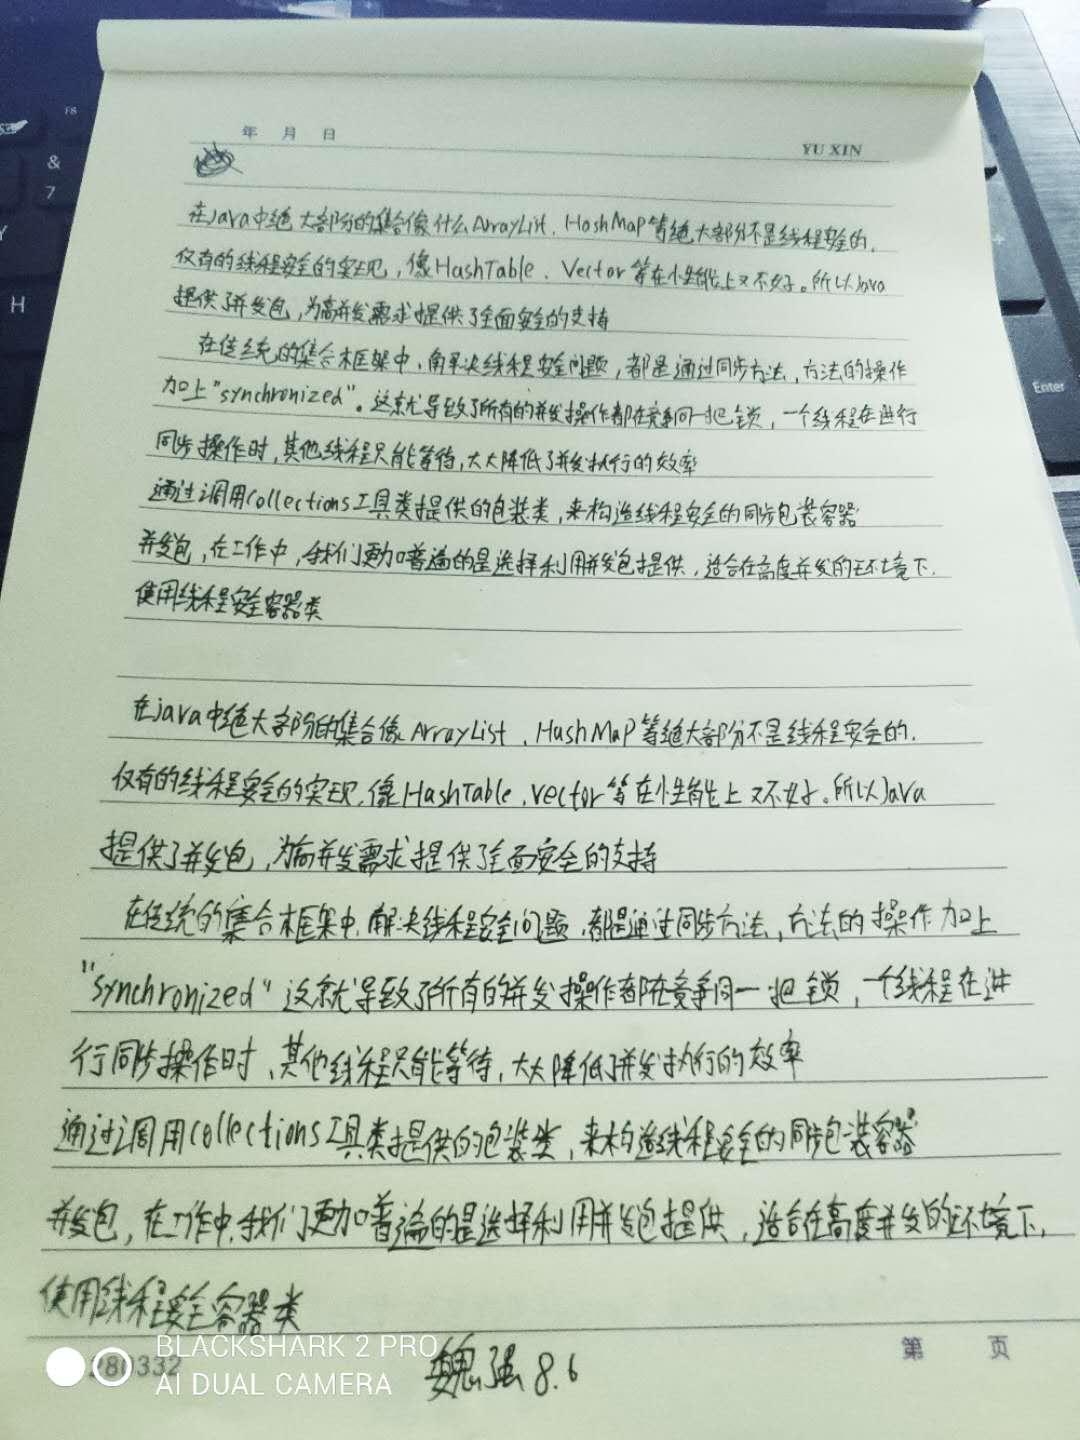 年 月 日
YU XIN
在Java中绝大部分的集合像什么ArrayList、HashMap等绝大部分不是线程安全的,
仅有的线程安全的实现,像HashTable、Vector等在性能上又不好。所以Java
提供了并发包,为高并发需求提供了全面安全的支持
在传统的集合框架中,解决线程安全问题,都是通过同步方法,方法的操作
加上"synchronized"。这就导致了所有的并发操作都在竞争同一把锁,一个线程在进行
同步操作时,其他线程只能等待,大大降低了并发执行的效率
通过调用Collections工具类提供的包装类,来构造线程安全的同步包装容器
并发包,在工作中,我们更加普遍的是选择利用并发包提供,适合在高度并发的环境下,
使用线程安全容器类
在java中绝大部份的集合像ArrayList、HashMap等绝大部分不是线程安全的,
仅有的线程安全的实现,像HashTable、vector等在性能上又不好。所以Java
提供了并发包,为高并发需求提供了全面安全的支持
在传统的集合框架中,解决线程安全问题,都是通过同步方法,方法的操作加上
"synchronized"这就导致了所有的并发操作都在竞争同一把锁,一个线程在进
行同步操作时,其他线程只能等待,大大降低了并发执行的效率
通过调用Collections工具类提供的包装类,来构造线程安全的同步包装容器
并发包,在工作中,我们更加普遍的是选择利用并发包提供,适合在高度并发的环境下,
使用线程安全容器类
魏强 8.6
第 页
280332
BLACKSHARK 2 PRO
AI DUAL CAMERA
&
7
F8
H
Enter